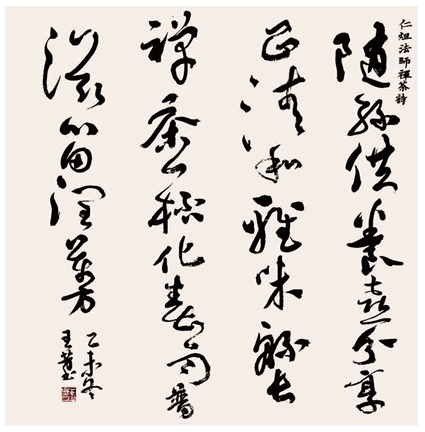 仁炟法師禪茶詩
隨緣供養喜分享
正清和雅味綿長
禪茶一化春雨普
滋心田潤萬方
乙未冬
王書